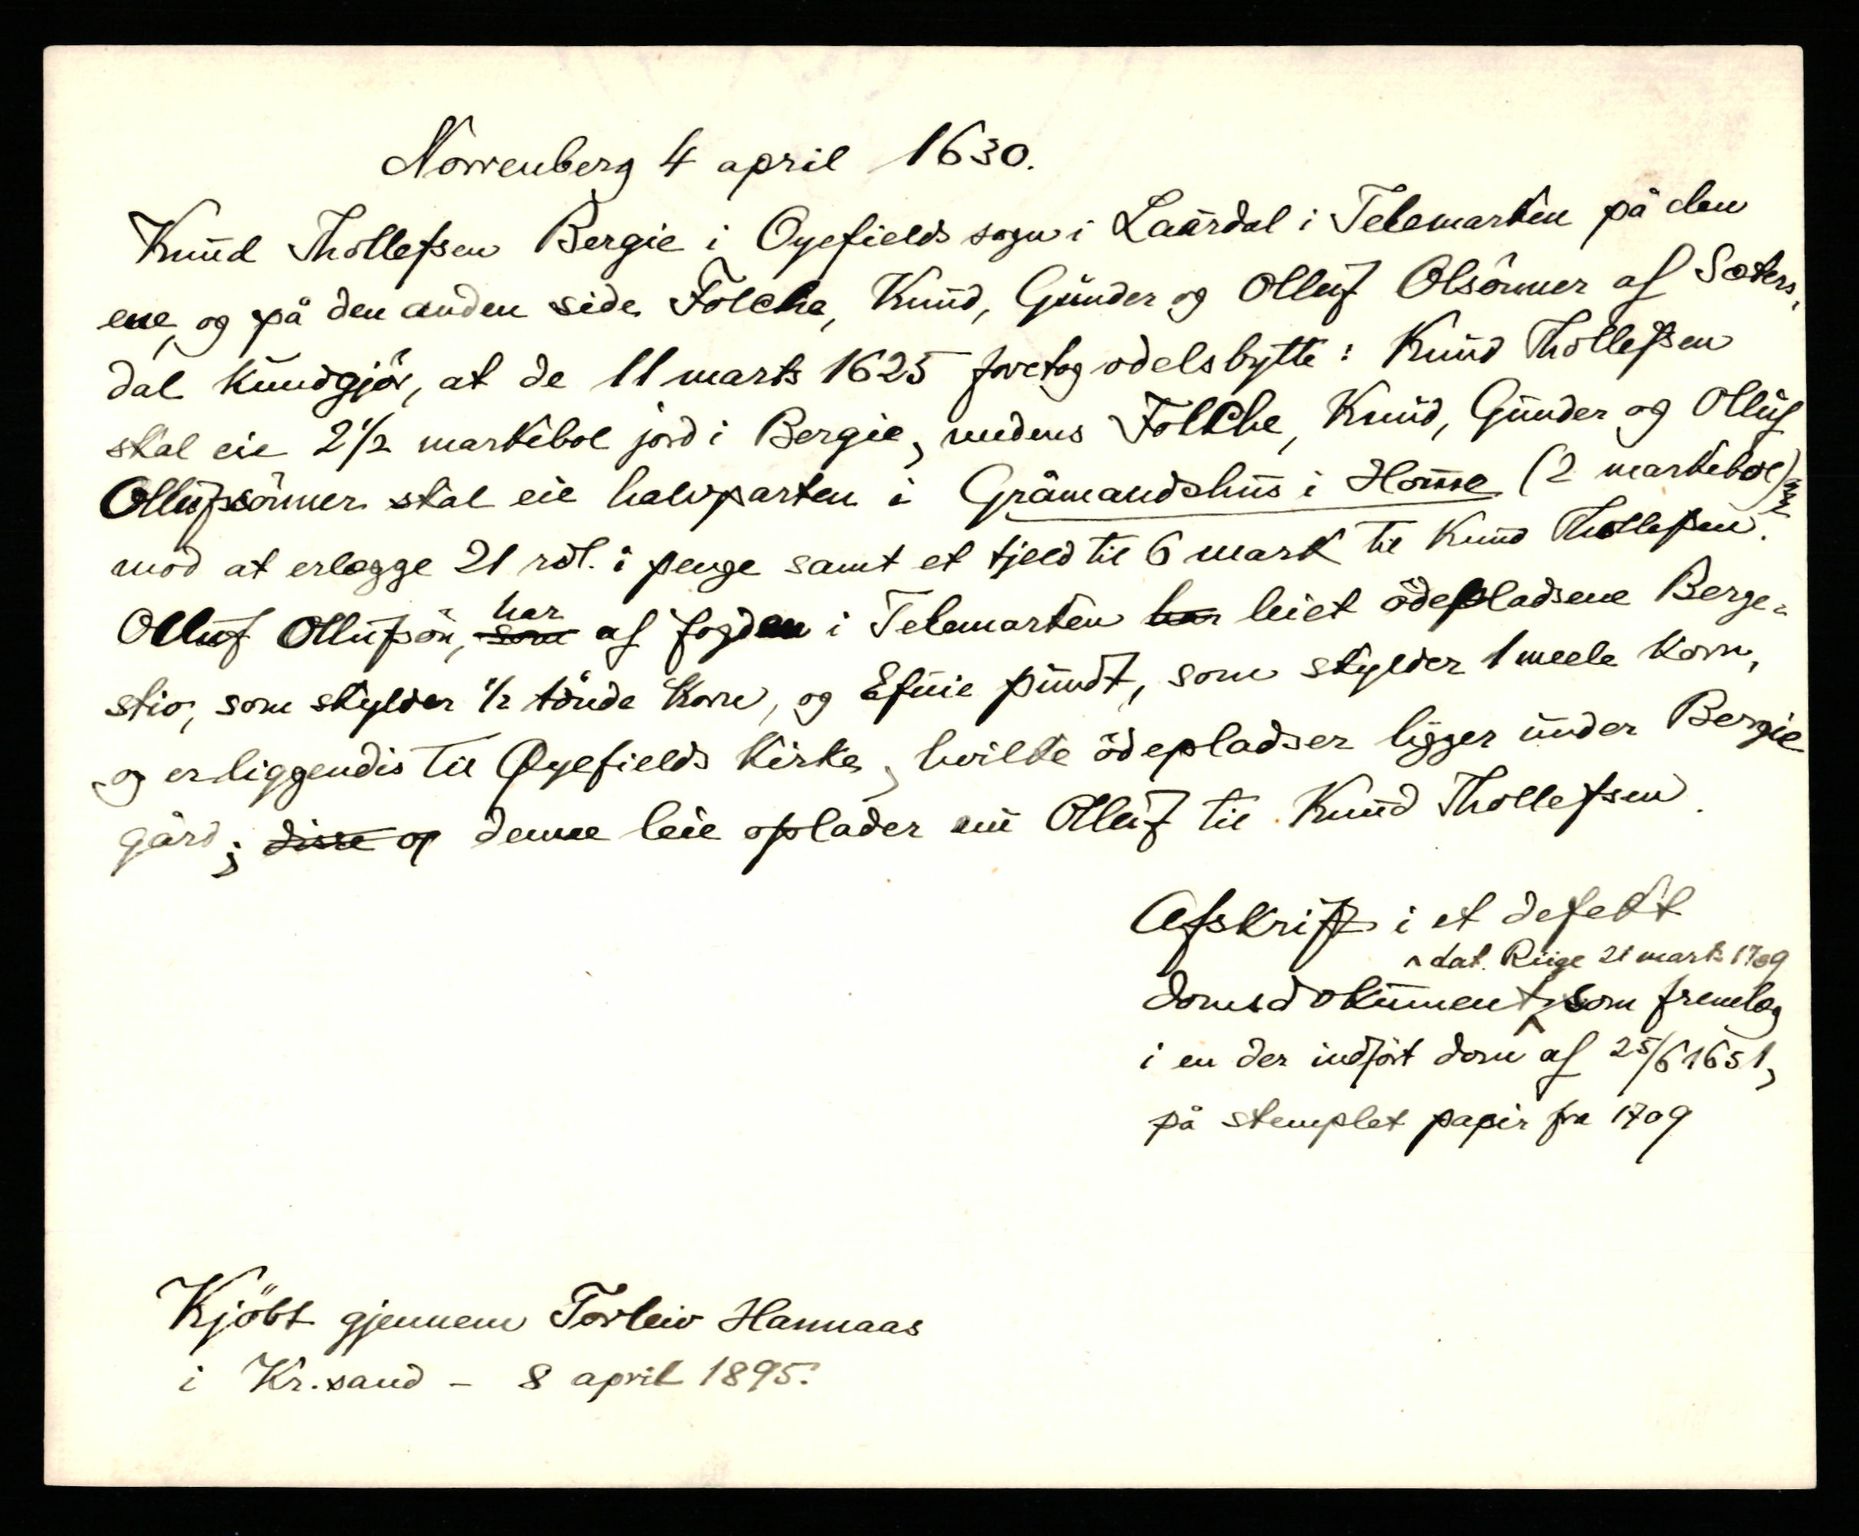 Norrenberg 4 april 1630.
Knud Thollefsen Bergie i Oyefields sogn i Laurdal i Telemarken på den
ene, og på den anden side Folche, Knud, Gunder og Olluf Olsönner af Sæters-
dal kundgjör, at de 11 marts 1625 foretog odelsbytte: Knud Thollefsen
skal eie 2 1/2 markebol jord i Bergie, medens Folche, Knud, Gunder og Olluf
Ollufsönner skal eie halvparten i Gråmandshus i Homme (2 markebol)
mod at erlægge 21 rdl. i penge samt et kjeld til 6 mark til Knud Thollefsen.
Olluf Ollufsön, som har af fogden i Telemarken har leiet ödepladsene Berge-
stio, som skylder 1/2 tönde korn, og Efuie pundt, som skylder 1 meele korn,
og er liggendis til Øyefields kirke, hvilke ödepladser ligger under Bergie
gård; disse op denne leie oplader nu Olluf til Knud Thollefsen.
Afskrift i et defekt
dat. Riige 21 marts 1709
domsdokument, som fremlag
i en der indfört dom af 25/6 1651,
på stemplet papir fra 1709
Kjöbt gjennem Torleiv Hannaas
i Kr.sand - 8 april 1895.